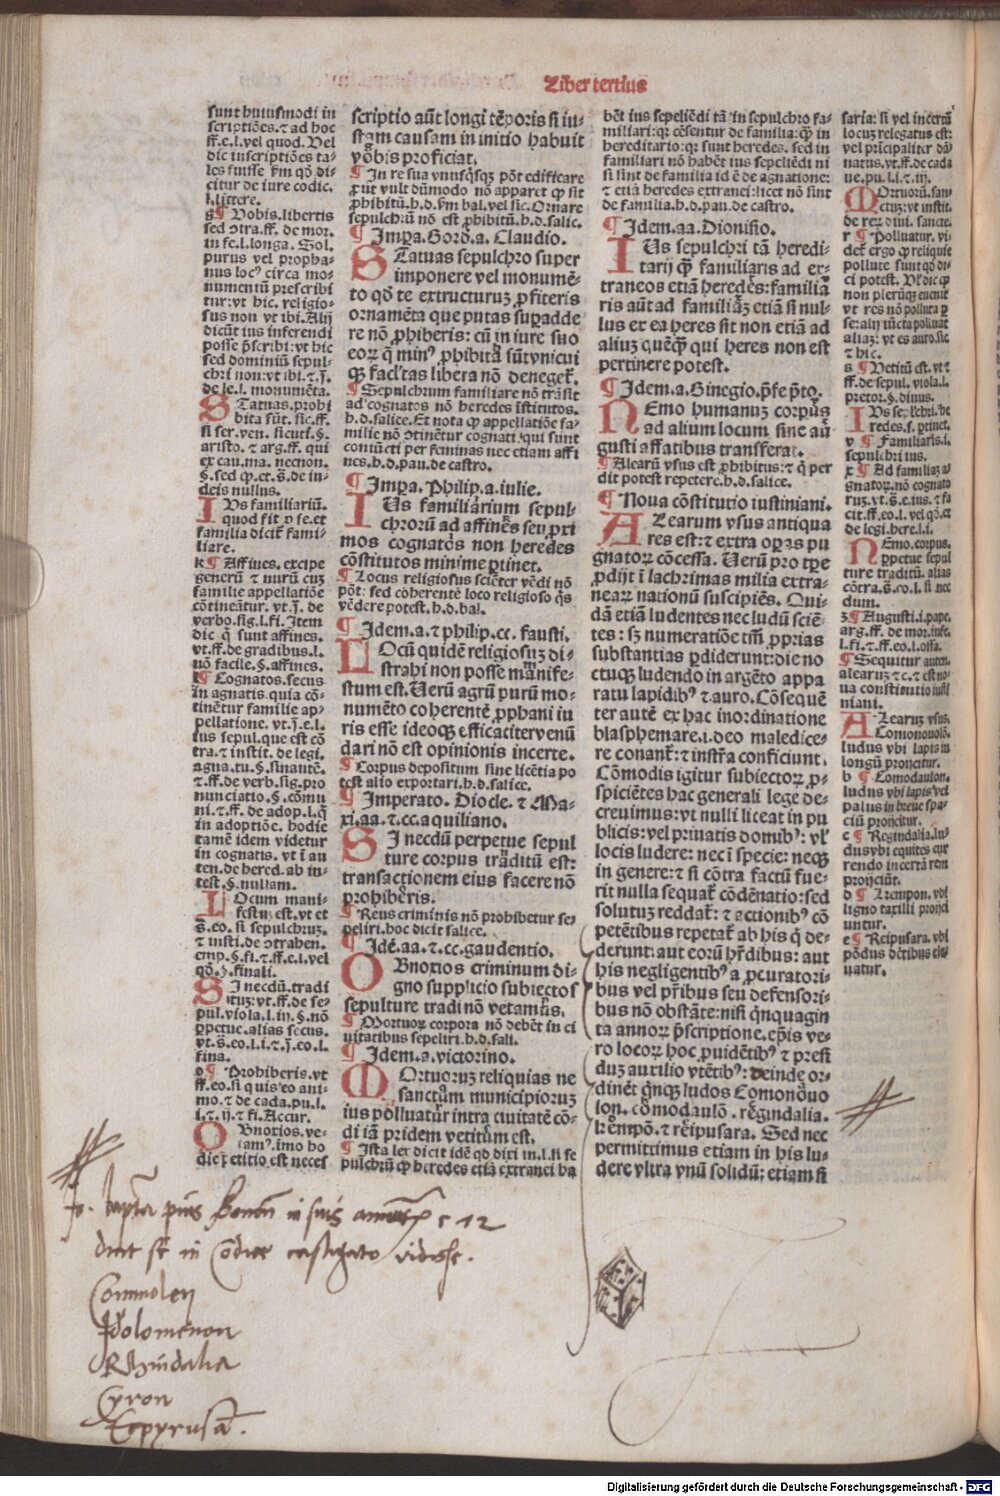 Liber tertius
sunt huiusmodi in
scriptiões. ⁊ ad hoc
ff. e. l. vel quod. Vel
dic inscriptiões ta-
les fuisse ẜm qḋ di-
citur de iure codic.
l. littere.
g ¶ Vobis. libertis
sed ɔtra. ff. de mor.
in fe. l. longa. Sol.
purus vel propha-
nus locꝰ circa mo-
numentũ prescribi
tur: vt hic. religio-
sus non vt ibi. Alij
dicũt ius inferendi
posse p̃scribi: vt hic
sed dominiũ sepul-
chri non: vt ibi. ⁊.j̃.
de le. l. monumẽta.
STatuas. probi
bita sũt. sic. ff.
si ser. ven. sicuti. §.
aristo. ⁊ arg. ff. qui
ex cau. ma. necnon.
§. sed qď. et. §. de in-
deis nullus.
IVs familiariũ.
quod fit ꝓ se. et
familia dicit̃ fami-
liare.
k ¶ Affines. excipe
generũ ⁊ nurũ cuʒ
familie appellatiõe
cõtineãtur. vt. j̃. de
verbo. sig. l. fi. Item
dic q̃ sunt affines.
vt. ff. de gradibus. l.
nõ facile. §. affines.
l ¶ Cognatos. secus
in agnatis. quia cõ-
tinẽtur familie ap-
pellatione. vt. j̃. e. l.
ius sepul. que est cõ
tra. ⁊ instit. de legi.
agna. tu. §. sinautẽ.
⁊. ff. de verb. sig. pro
nunciatio. §. cõmu
ni. ⁊. ff. de adop. l. q̃
in adoptiõe. hodie
tamẽ idem videtur
in cognatis. vt ĩ au
ten. de hered. ab in-
test. §. nullam.
LOcum mani-
festũ est. vt et
s̃. eo. si sepulchruʒ.
⁊ insti. de ɔtraben.
emp. §. fi. ⁊. ff. e. l. vel
qḋ. §. finali.
SI necdũ. tradi
tuʒ: vt. ff. de se-
pul. viola. l. iij. §. nõ
ꝑpetue. alias secus.
vt. s̃. eo. l. i. ⁊. j̃. eo. l.
fina.
o ¶ Prohiberis. vt
ff. eo. si quis eo ani-
mo. ⁊ de cada. pu. l.
i. ⁊. ij. ⁊ fi. Accur.
OBnoxios. ve-
iamꝰ. imo ho
die petitio est neces
scriptio aũt longi tẽporis si iu-
stam causam in initio habuit
vobis proficiat.
¶ In re sua vnusq̃sqʒ põt edificare
ꝓut vult dũmodo nõ apparet ꝙ sit
ꝓhibitũ. h. d. ẜm bal. vel sic. Ornare
sepulchrũ nõ est ꝓhibitũ. h. d. salic.
¶ Impa. Gord. a. Claudio.
STatuas sepulchro super
imponere vel monumẽ-
to qḋ te extructuruʒ ꝓfiteris
ornamẽta que putas supadde
re nõ ꝓhiberis: cũ in iure suo
eoꝝ q̃ minꝰ ꝓhibita sũt vnicui
qʒ facl̃tas libera nõ denegeť.
¶ Sepulchrum familiare nõ trãsit
ad cognatos nõ heredes ĩstitutos.
h. d. salice. Et nota ꝙ appellatiõe fa-
milie nõ ɔtinẽtur cognati: qui sunt
coniũcti per feminas nec etiam affi
nes. h. d. pau. de castro.
¶ Impa. Philip. a. iulie.
IUs familiarium sepul-
chrorũ ad affines seu ꝓxi
mos cognatos non heredes
cõstitutos minime ꝑtinet.
¶ Locus religiosus sciẽter vẽdi nõ
põt: sed coherentẽ loco religioso q̃s
vẽdere potest. h. d. bal.
¶ Idem. a. ⁊ philip. cc. fausti.
LOcũ quidẽ religiosuʒ di-
strahi non posse manife-
stum est. Uerũ agrũ purũ mo-
numẽto coherentẽ ꝓphani iu
ris esse ideoqʒ efficaciter venũ
dari nõ est opinionis incerte.
¶ Corpus depositum sine licẽtia po
test alio exportari. h. d. salice.
¶ Imperato. Diocle. ⁊ Ma-
xi. aa. ⁊. cc. aquiliano.
SI necdũ perpetue sepul
ture corpus traditũ est:
transactionem eius facere nõ
prohiberis.
¶ Reus criminis nõ prohibetur se-
peliri. hoc dicit salice.
¶ Idẽ. aa. ⁊. cc. gaudentio.
OBnoxios criminum di-
gno supplicio subiectos
sepulture tradi nõ vetamus.
¶ Mortuoꝝ corpora nõ debẽt in ci
uitatibus sepeliri. h. d. sali.
¶ Idem. a. victorino.
MOrtuoruʒ reliquias ne
sanctum municipioruʒ
ius polluatur intra ciuitatẽ cõ-
di iã pridem vetitum est.
¶ Ista lex dicit idẽ qḋ dixi in. l. si se
pulchrũ ꝙ heredes etiã extranei ha
bẽt ius sepeliẽdi tã in sepulchro fa-
miliari: qʒ cẽsentur de familia: ꝙ in
hereditario: qʒ sunt heredes. sed in
familiari nõ habẽt ius sepeliẽdi ni
si sint de familia id ẽ de agnatione:
⁊ etiã heredes extranei: licet nõ sint
de familia. h. d. pau. de castro.
¶ Idem. aa. Dionisio.
IUs sepulchri tã heredi-
tarij ꝙ familiaris ad ex-
traneos etiã heredes: familia
ris aũt ad familiaʒ etiã si nul-
lus ex ea heres sit non etiã ad
aliuʒ quẽqʒ qui heres non est
pertinere potest.
¶ Idem. a. Ginegio. p̃fe p̃to.
NEmo humanuʒ corpus
ad alium locum sine au
gusti affatibus transferat.
¶ Alearũ vsus est ꝓhibitus: ⁊ q̃ per
dit potest repetere. h. d. salice.
¶ Noua cõstitutio iustiniani.
ALearum vsus antiqua
res est: ⁊ extra oꝑas pu
gnatoꝝ cõcessa. Uerũ pro tꝑe
ꝓdijt ĩ lachrimas milia extra-
neaꝝ nationũ suscipiẽs. Qui-
dã etiã ludentes nec ludũ sciẽ-
tes: sʒ numeratiõe tm̃ ꝓprias
substantias ꝑdiderunt: die no
ctuqʒ ludendo in argẽto appa
ratu lapidibꝰ ⁊ auro. Cõsequẽ
ter autẽ ex hac inordinatione
blasphemare. i. deo maledice-
re conant̃: ⁊ instr̃a conficiunt.
Cõmodis igitur subiectoꝝ ꝓ-
spiciẽtes hac generali lege de-
creuimus: vt nulli liceat in pu
blicis: vel priuatis domibꝰ: vl̃
locis ludere: nec ĩ specie: neqʒ
in genere: ⁊ si cõtra factũ fue-
rit nulla sequať cõdẽnatio: sed
solutuʒ reddať: ⁊ actionibꝰ cõ
petẽtibus repetať ab his q̃ de-
derunt: aut eorũ hr̃dibus: aut
his negligentibꝰ a ꝓcuratori-
bus vel pr̃ibus seu defensori-
bus nõ obstãte: nisi q̃nquagin
ta annoꝝ p̃scriptione. ep̃is ve-
ro locoꝝ hoc ꝓuidẽtibꝰ ⁊ presi
duʒ auxilio vtẽtibꝰ: deinde or-
dinẽt q̃nqʒ ludos Comonõuo
lon. cõmodaulõ. rẽgindalia.
lrempõ. ⁊ reipusara. Sed nec
permittimus etiam in his lu-
dere vltra vnũ solidũ: etiam si
saria: si vel incertũ
locuʒ relegatus est:
vel pͥncipaliter dã
natus. vt. ff. de cada
ue. pu. l. i. ⁊. iij.
MOrtuorũ. san-
ctuʒ: vt instit.
de reꝝ diui. sancte.
r ¶ Polluatur. vi-
det̃ ergo ꝙ reliquie
pollute sunt qḋ di-
ci potest. Vl̃ dic ꝙ
non plerũqʒ euenit
vt res nõ polluta ꝑ
se: alij iũcta polluat
aliaʒ: vt es auro. sic
⁊ hic.
s ¶ Vetitũ est. vt ⁊
ff. de sepul. viola. l.
pretor. §. diuus.
IUs sepulchri. he
redes. s. ꝑtinet.
v ¶ Familiaris. i.
sepulchri ius.
x ¶ Ad familiaʒ a-
gnatoꝝ. nõ cognato
ruʒ. vt. s̃. e. ius. ⁊ fa
cit. ff. eo. l. vel qḋ. et
de legi. here. l. i.
NEmo. corpus.
ꝑpetue sepul
ture traditũ. alias
cõtra. s̃. eo. l. si nec
dum.
z ¶ Augusti. i. pape.
arg. ff. de mor. infe.
l. fi. ⁊. ff. eo. l. ossa.
¶ Sequitur auten.
alearuʒ ⁊c. ⁊ est no-
ua constitutio iusti
niani.
ALearuʒ vsus.
Comonouolõ.
ludus vbi lapis in
longũ proijcitur.
b ¶ Comodaulon.
ludus vbi lapis vel
palus in breue spa-
ciũ proijcitur.
c ¶ Regindalia. lu-
dus vbi equites cur
rendo incertã rem
proijciũt.
d ¶ Lrempon. vbi
ligno taxilli proijci
untur.
e ¶ Reipusara. vbi
põdus dẽtibus ele-
uatur.
Jo. bapta pius Bonon in suis annot c 12
dicit se in Codice castigato vidisse.
Commolen
Idolomenon
Rhindalia
Cyron
Copyrusa.
Digitalisierung gefördert durch die Deutsche Forschungsgemeinschaft - DFG